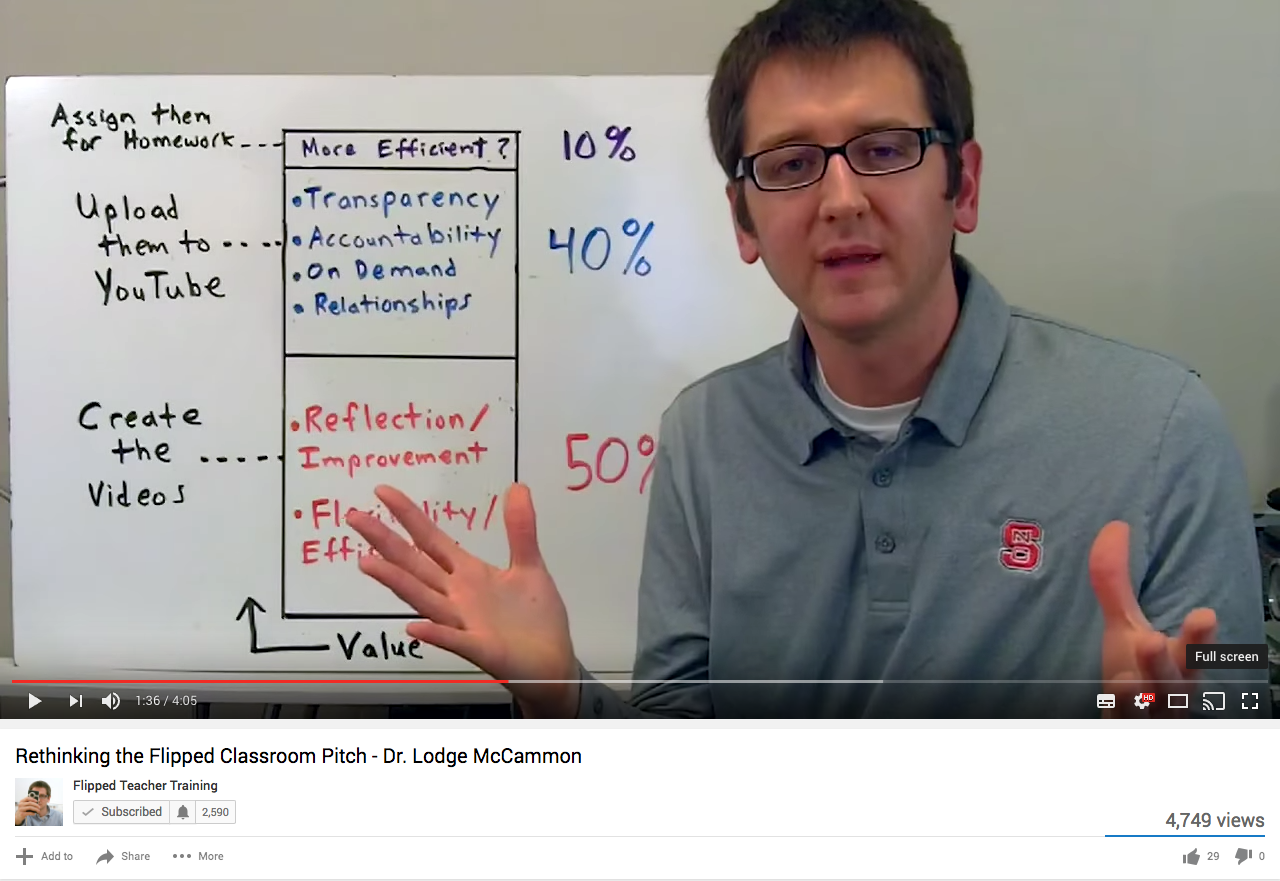 Assign them
for Homework
More Efficient?
10%
Upload
them to
YouTube
• Transparency
• Accountability
• On Demand
• Relationships
40%
Create
the
Videos
• Reflection/
Improvement
50%
Value
NS
Full screen
1:36 / 4:05
HD
Rethinking the Flipped Classroom Pitch - Dr. Lodge McCammon
Flipped Teacher Training
Subscribed 2,590
4,749 views
Add to Share More
29 0